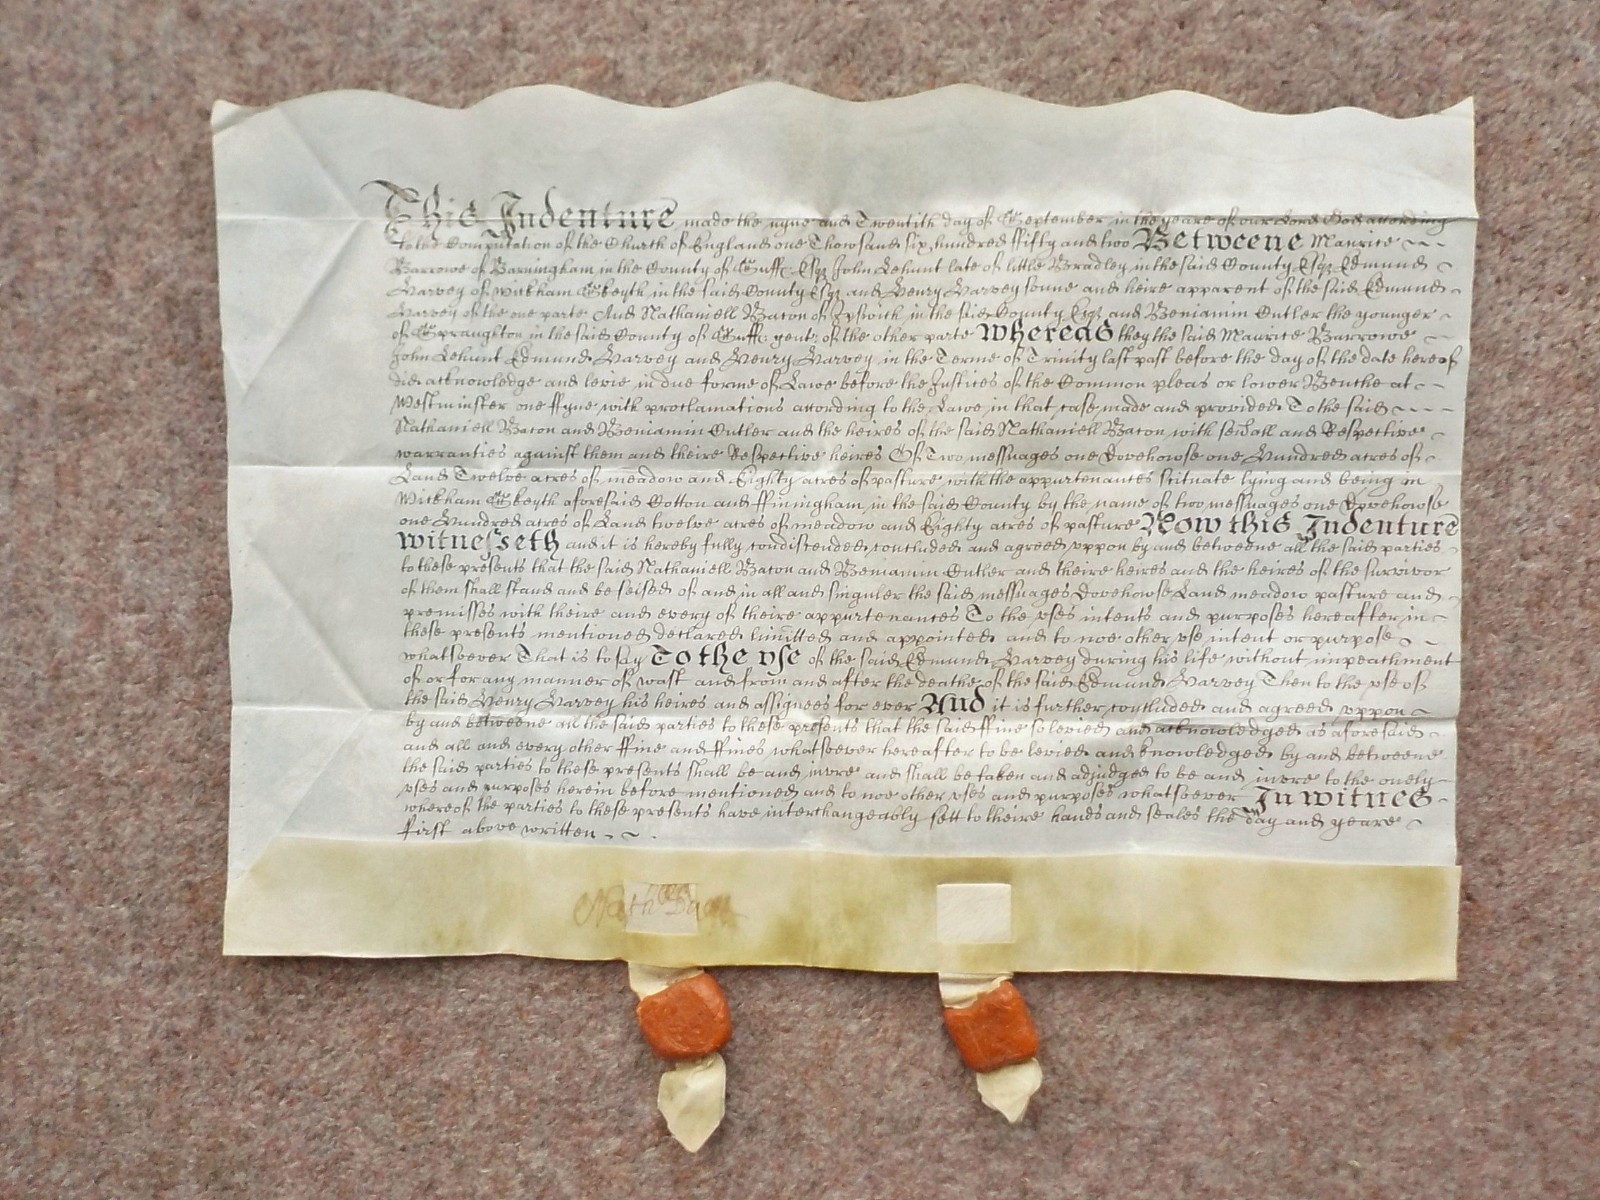 This Indenture made the nyne and Twentith day of September in the yeare of our Lord God according
to the Computation of the Church of England one Thowsand six hundred ffifty and two Betweene Maurice
Barrowe of Barningham in the County of Suff Esqr John Lehunt late of little Bradley in the said County Esqr Edmund
Harvey of Wickham Skeyth in the said County Esqr and Henry Harvey sonne and heire apparent of the said Edmund
Harvey of the one parte And Nathaniell Bacon of Ipswich in the said County Esqr and Beniamin Cutler the younger
of Spraughton in the said County of Suff: gentr of the other parte Whereas they the said Maurice Barrowe
John Lehunt Edmund Harvey and Henry Harvey in the Terme of Trinity last past before the day of the date hereof
did acknowledge and levie in due forme of Lawe before the Justices of the Common pleas or lower Benche at
Westminster one ffyne with proclamations according to the Lawe in that case made and provided To the said
Nathaniell Bacon and Beniamin Cutler and the heires of the said Nathaniell Bacon with sevall and Respective
warranties against them and theire Respective heires Of Two messuages one Dovehowse one Hundred acres of
Land Twelve acres of meadow and Eighty acres of pasture with the appurtenances scituate lying and being in
Wickham Skeyth aforesaid Cotton and ffiningham in the said County by the name of two messuages one Dovehowse
one Hundred acres of Land twelve acres of meadow and Eighty acres of pasture Now this Indenture
witnesseth and it is hereby fully condiscended concluded and agreed vppon by and betweene all the said parties
to these presents that the said Nathaniell Bacon and Beniamin Cutler and theire heires and the heires of the survivor
of them shall stand and be seised of and in all and singuler the said messuages Dovehowse Land meadow pasture and
premisses with theire and every of theire appurtenances To the vses intents and purposes hereafter in
these presents mentioned declared limitted and appointed and to noe other vse intent or purpose
whatsoever That is to say To the vse of the said Edmund Harvey during his life without impeachment
of or for any manner of wast and from and after the deathe of the said Edmund Harvey Then to the vse of
the said Henry Harvey his heires and assignees for ever And it is further concluded and agreed vppon
by and betweene all the said parties to these presents that the said ffine so levied and acknowledged as aforesaid
and all and every other ffine and ffines whatsoever hereafter to be levied and knowledged by and betweene
the said parties to these presents shall be and invre and shall be taken and adjudged to be and invre to the onely
vses and purposes herein before mentioned and to noe other vses and purposes whatsoever In witnes
whereof the parties to these presents have interchangeably sett to theire hands and seales the day and yeare
first above written
Nath: Bacon